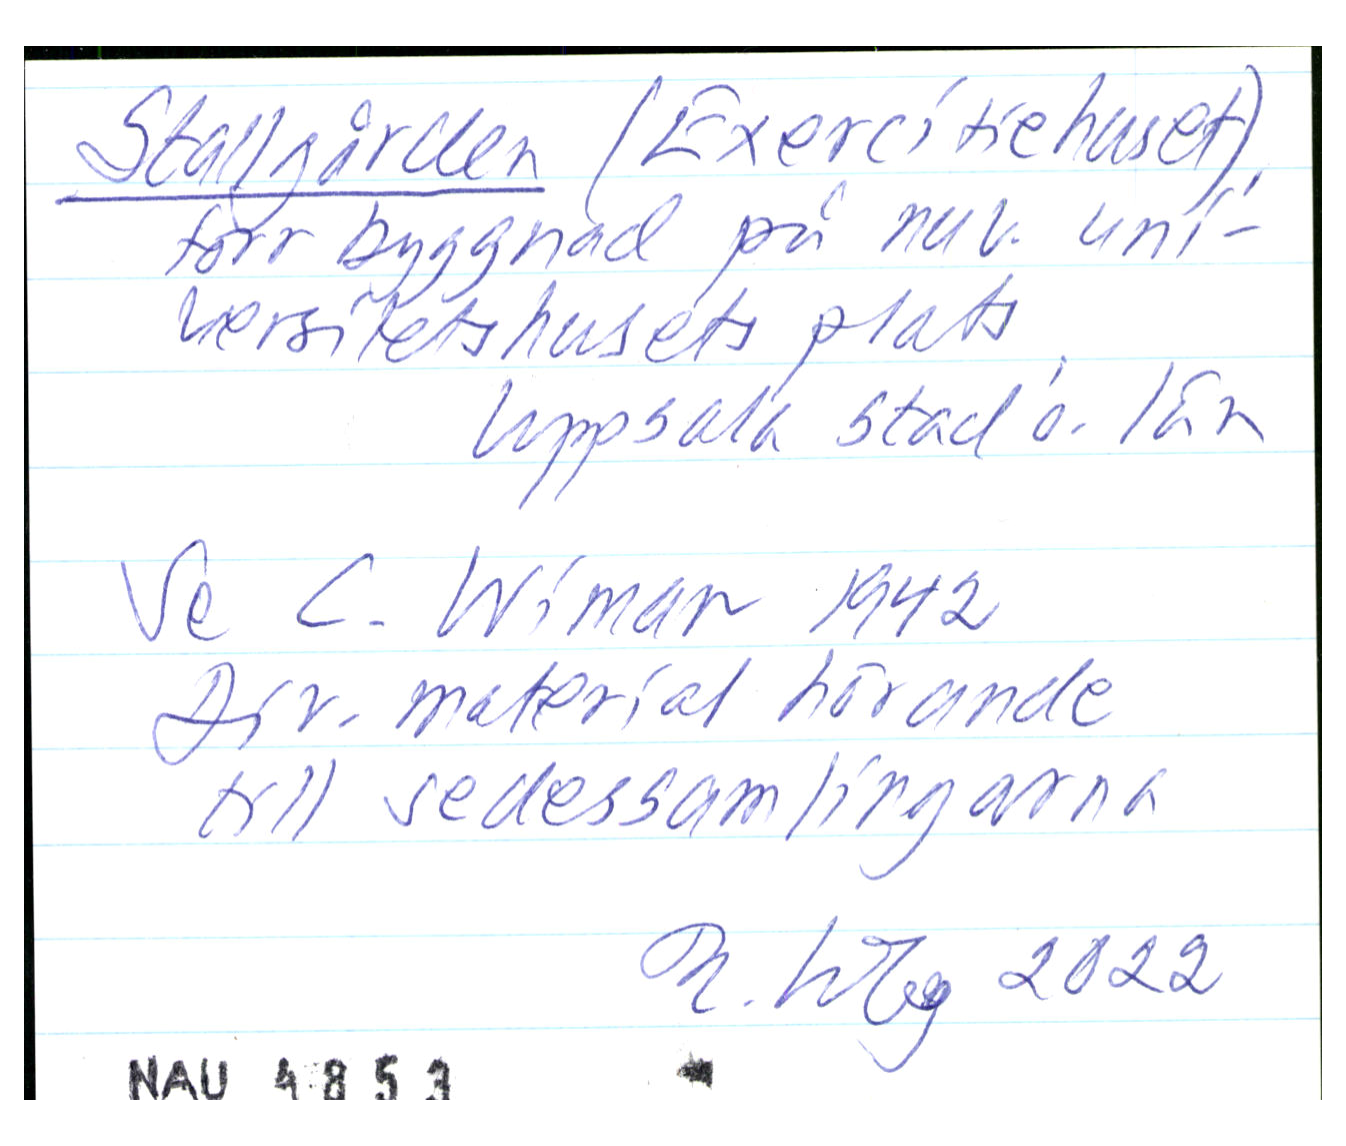 Stallgården (Exercitiehuset),
förr byggnad på nuv. uni-
versitetshusets plats
Uppsala stad o. län
Se C. Wiman 1942
Div. material hörande
till sedessamlingarna
2022
NAU 4853